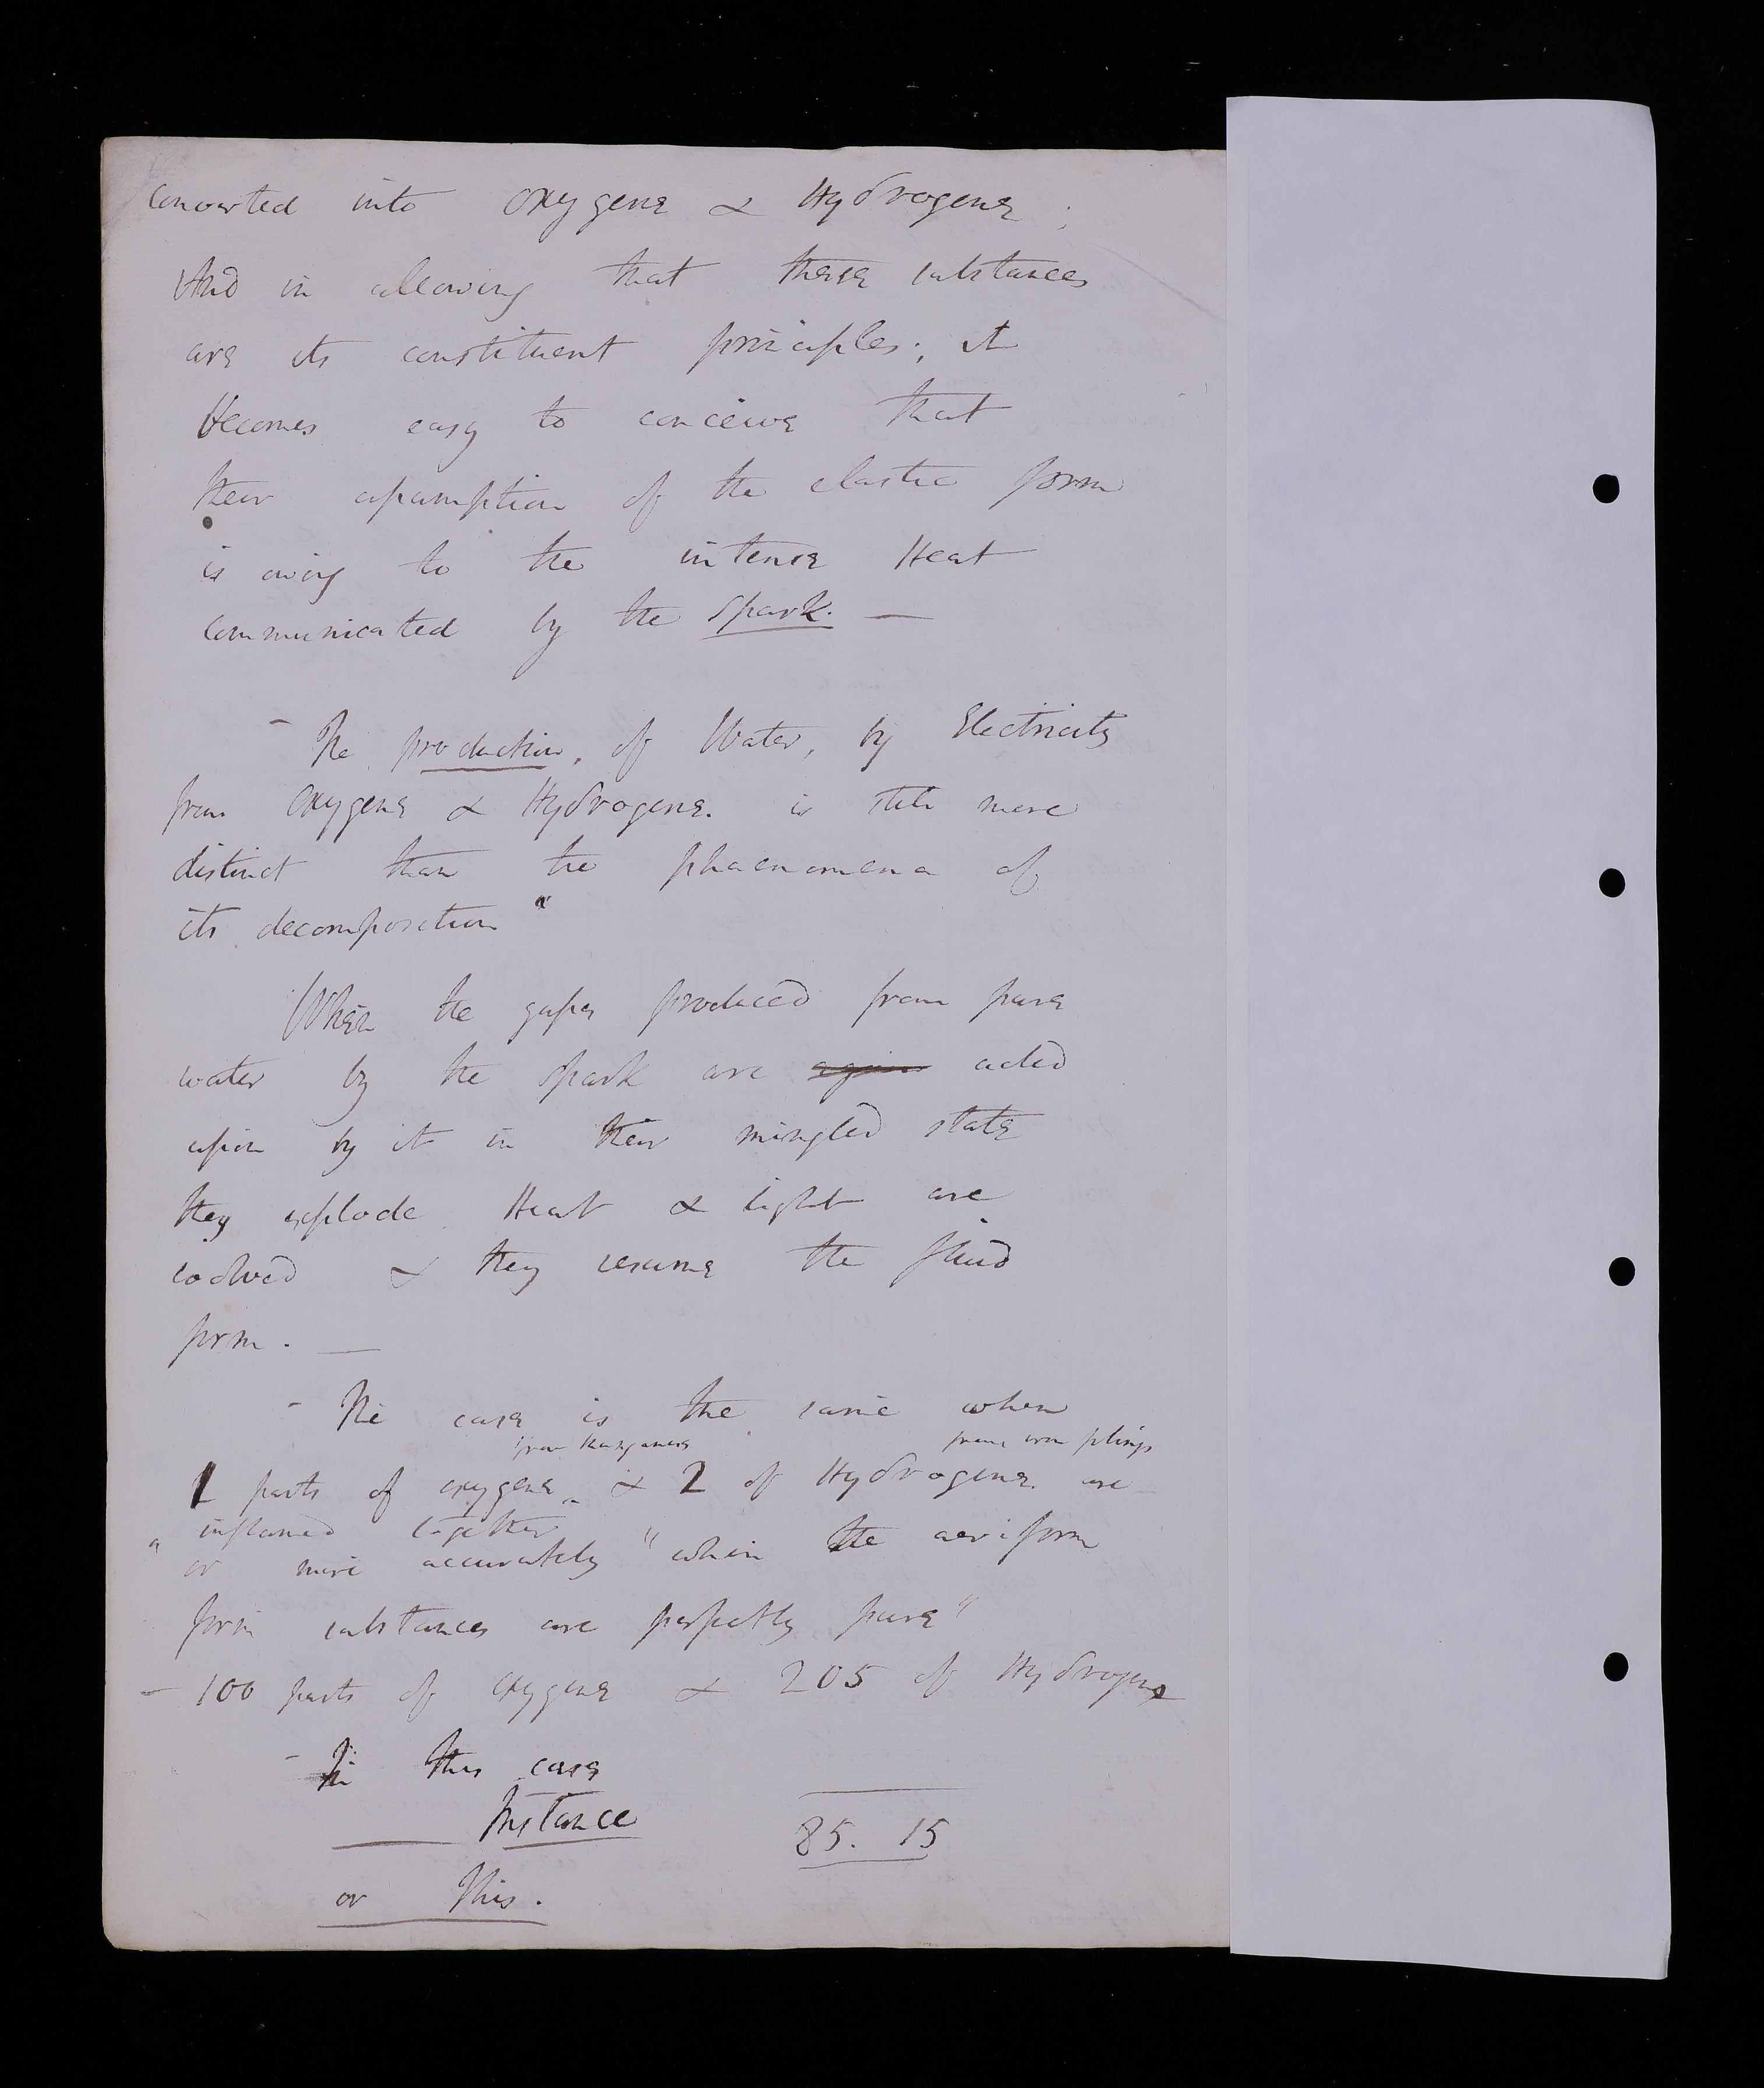 converted into oxygene & Hydrogene;
And in allowing that these substances
are its constituent principles; it
becomes easy to conceive that
their assumption of the elastic form
is owing to the intense Heat
communicated by the spark. —
- The production, of Water, by Electricity
from Oxygene & Hydrogene. is still more
distinct than the phaenomena of
its decomposition "
When the gases produced from pure
water by the spark are again acted
upon by it in their mingled state
they explode Heat & light are
evolved & they resume the fluid
form. —
- The case is the same when
from Manganese from iron filings
1 parts of oxygene & 2 of Hydrogene are
inflamed together
" or more accurately "when the aeriform
form substances are perfectly pure"
- 100 parts of oxygene & 205 of Hydrogene
- In this case
Instance
85. 15
or This.